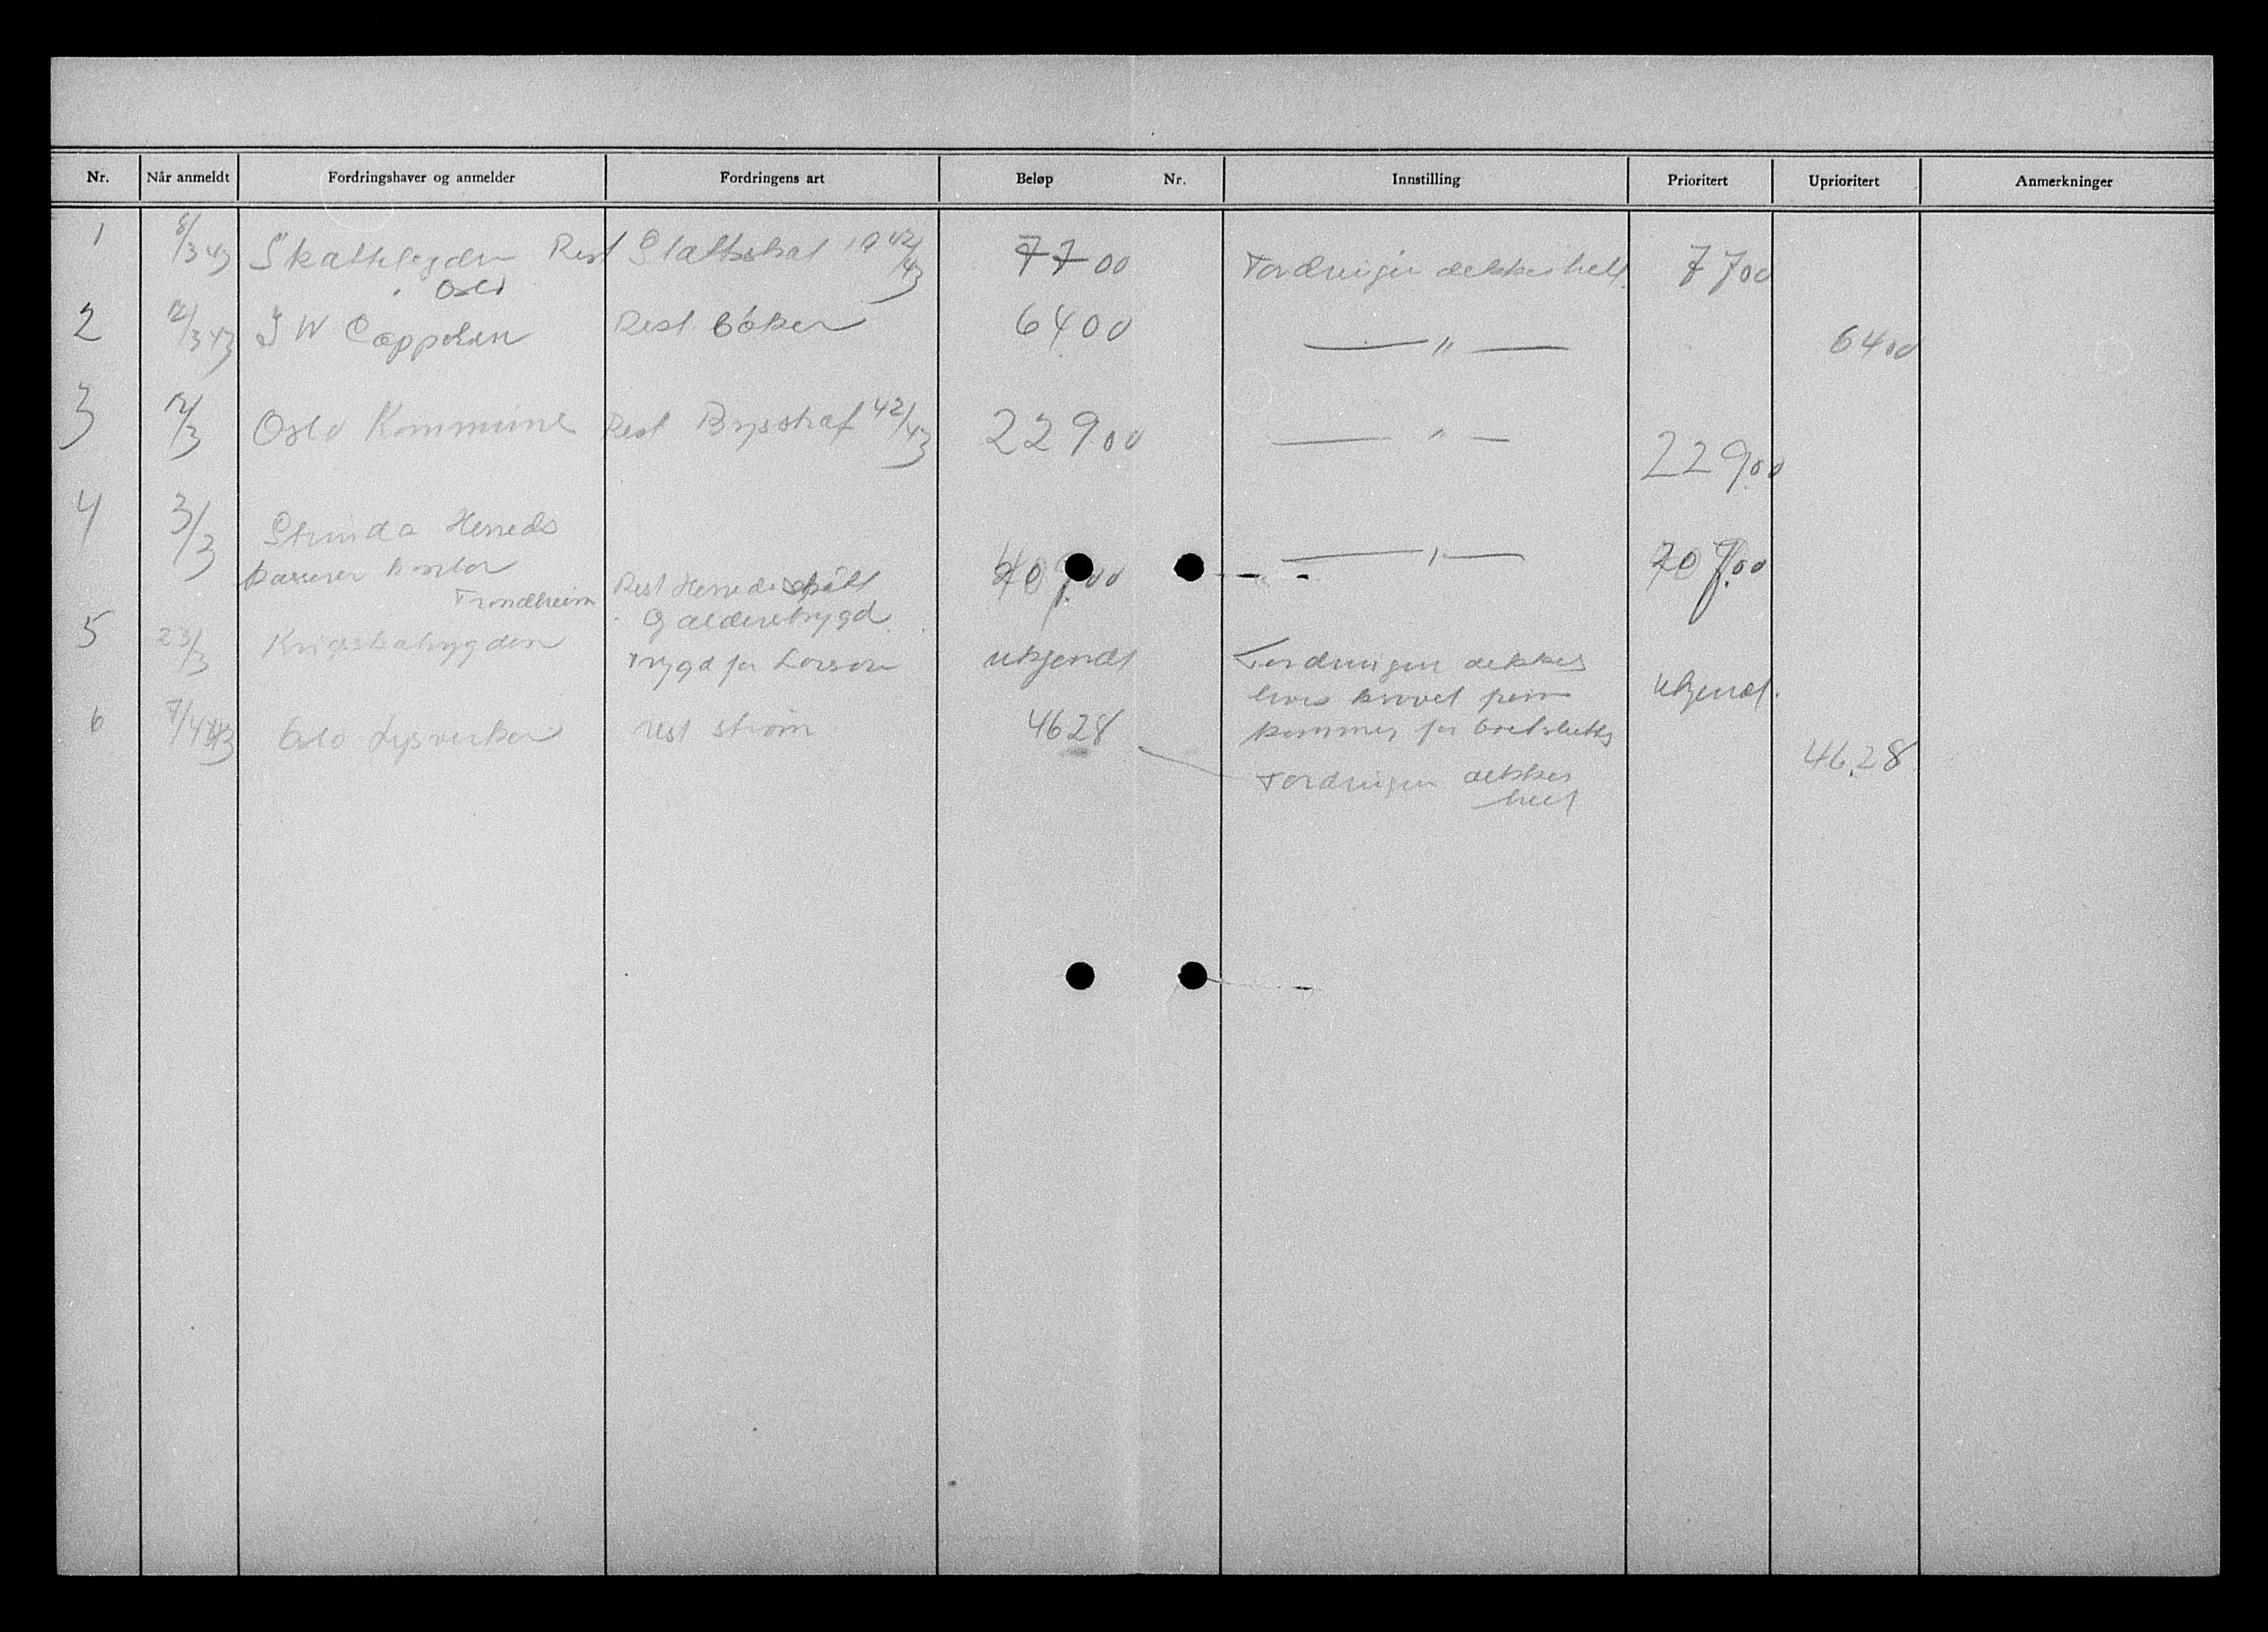 Nr. Når anmeldt Fordringshaver og anmelder Fordringens art Beløp Nr. Innstilling Prioritert Uprioritert Anmerkninger
1 8/3 43 Skattefogden Rest Stattsskat 1942/43 7700 Fordringen dekkes helt. 7700
Oslo
2 12/3 43 J W Cappelen Rest. bøker 6400 — " — 6400
3 12/3 Oslo Kommune Rest Bysskat 42/43 22900 — " — 22900
4 3/3 Strinda Herreds
kasserer kontor 00 — " — 70700
Trondheim Rest Herredsskatt
og alderstrygd
5 23/3 Krigsskatrygden Trygd for ukjendt Fordringen dekkes
hvis kravet frem ukjendt.
6 7/4 43 Oslo Lysverker rest strøm 4628 kommer før 46.28
Fordringen dekkes
helt